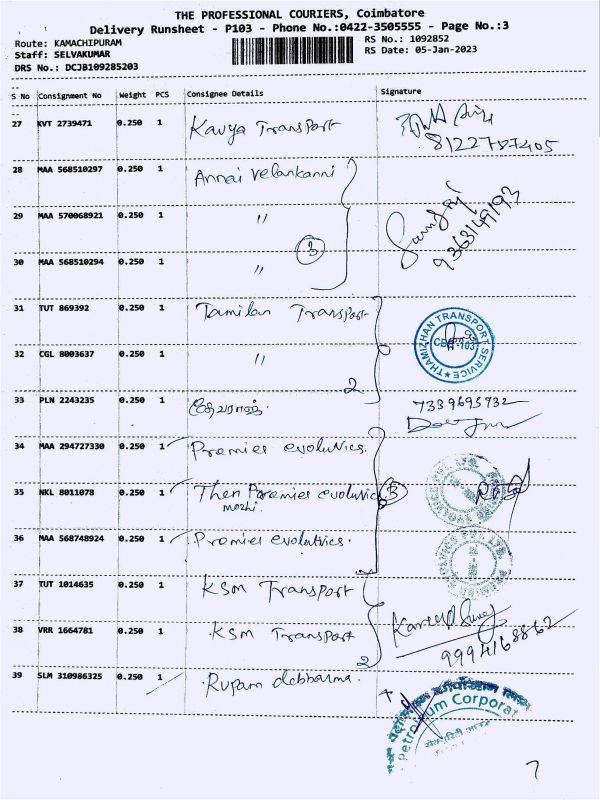 THE PROFESSIONAL COURIERS, Coimbatore
Delivery Runsheet - P103 - Phone No.:0422-3505555 - Page No.:3
Route: KAMACHIPURAM
RS No.: 1092852
Staff: SELVAKUMAR
RS Date: 05-Jan-2023
DRS No.: DCJB109285203
S No Consignment No Weight PCS Consignee Details Signature
27 KVT 2739471 0.250 1 Kavya Transport
8122787405
28 MAA 568510297 0.250 1 Annai Velankanni
29 MAA 570068921 0.250 1 "
9363149193
3
30 MAA 568510294 0.250 1 "
31 TUT 869392 0.250 1 Tamilan Transport
THAMIZHAN TRANSPORT SERVICE
32 CGL 8003637 0.250 1 "
2
33 PLN 2243235 0.250 1
7339695732
34 MAA 294727330 0.250 1 Premier evolutvics.
35 NKL 8011078 0.250 1 Then Premier evolutvic 3
mozhi
36 MAA 568748924 0.250 1 Premier evolutvics.
37 TUT 1014635 0.250 1 KSM Transport
38 VRR 1664781 0.250 1 KSM Transport
2
9994168862
39 SLM 310986325 0.250 1 Rupam debbarma.
Petroleum Corporat